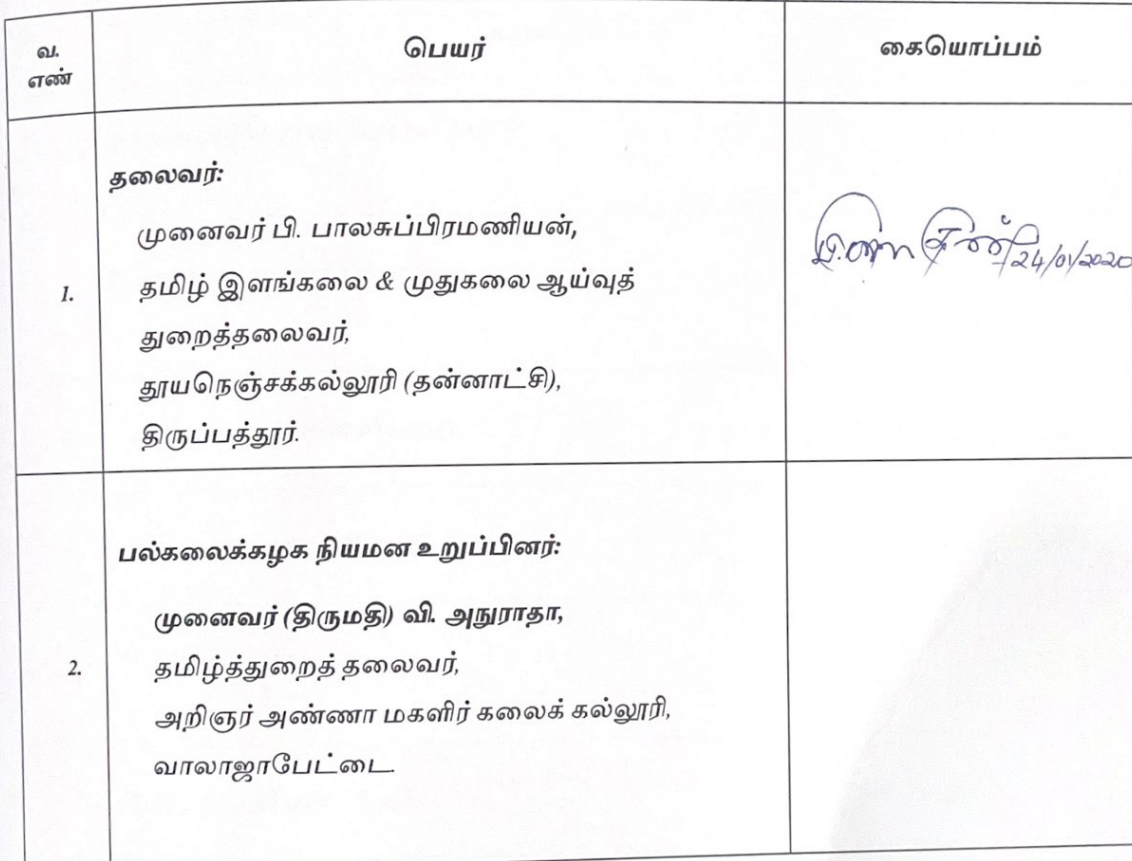 வ.
எண்
பெயர்
கையொப்பம்
தலைவர்:
முனைவர் பி. பாலசுப்பிரமணியன்,
1.
தமிழ் இளங்கலை & முதுகலை ஆய்வுத்
துறைத்தலைவர்,
தூயநெஞ்சக்கல்லூரி (தன்னாட்சி),
திருப்பத்தூர்.
24/01/2020
பல்கலைக்கழக நியமன உறுப்பினர்:
முனைவர் (திருமதி) வி. அநுராதா,
2.
தமிழ்த்துறைத் தலைவர்,
அறிஞர் அண்ணா மகளிர் கலைக் கல்லூரி,
வாலாஜாபேட்டை.